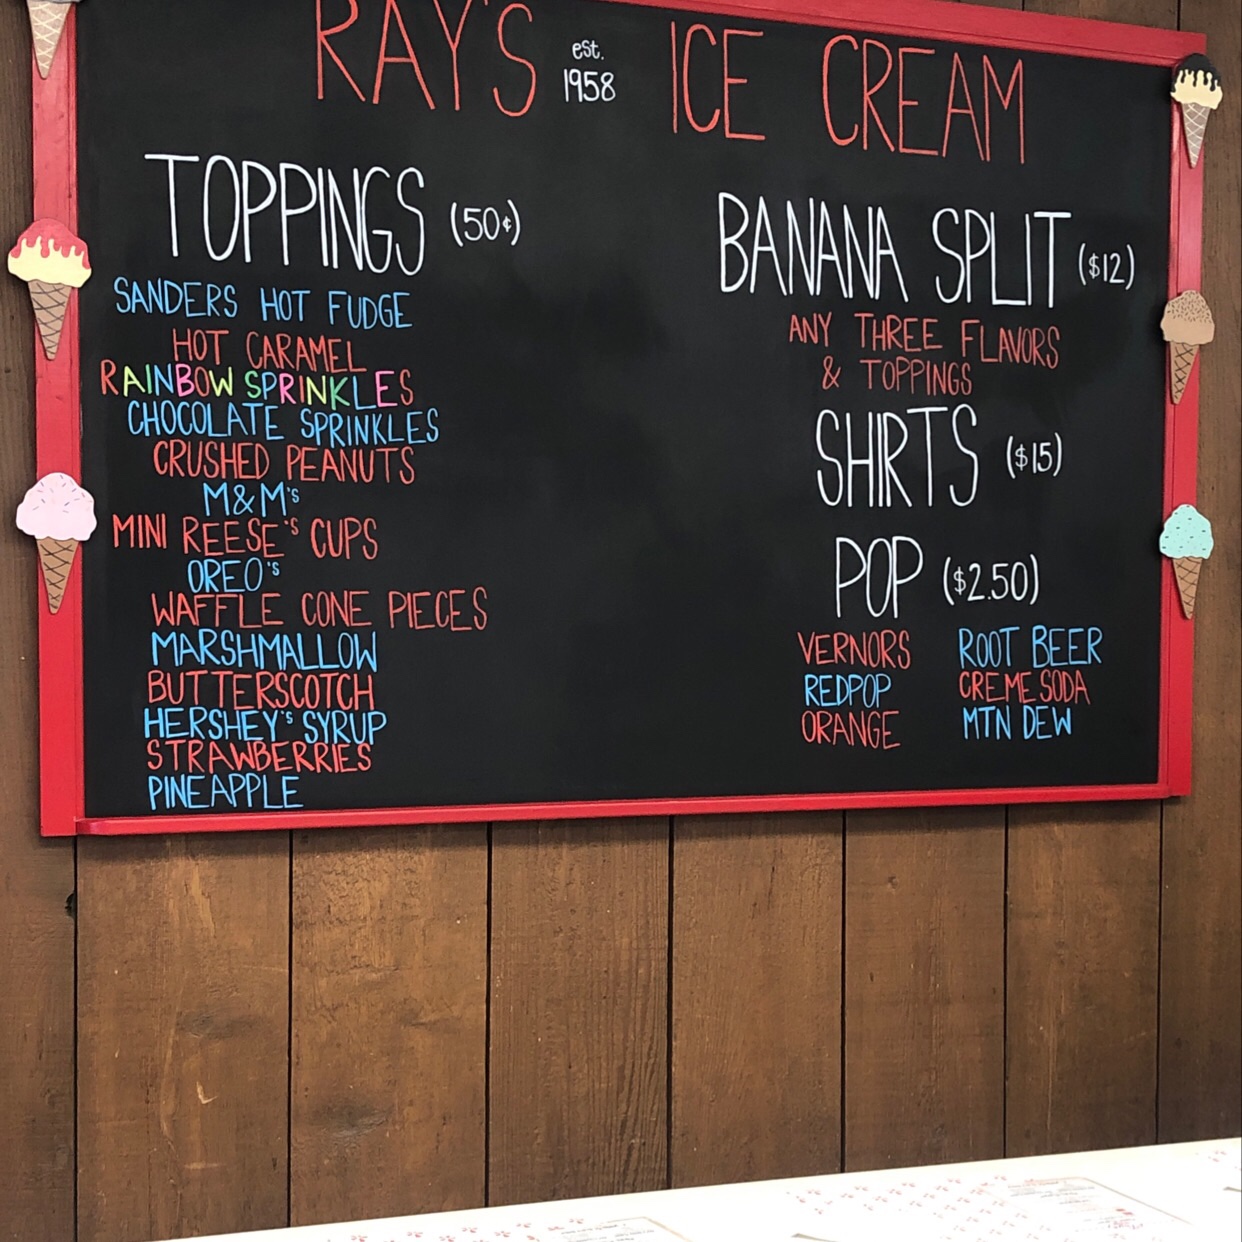 RAY'S est. 1958 ICE CREAM
TOPPINGS (50¢)
SANDERS HOT FUDGE
HOT CARAMEL
RAINBOW SPRINKLES
CHOCOLATE SPRINKLES
CRUSHED PEANUTS
M&M's
MINI REESE's CUPS
OREO's
WAFFLE CONE PIECES
MARSHMALLOW
BUTTERSCOTCH
HERSHEY's SYRUP
STRAWBERRIES
PINEAPPLE
BANANA SPLIT ($12)
ANY THREE FLAVORS
& TOPPINGS
SHIRTS ($15)
POP ($2.50)
VERNORS ROOT BEER
REDPOP CREME SODA
ORANGE MTN DEW